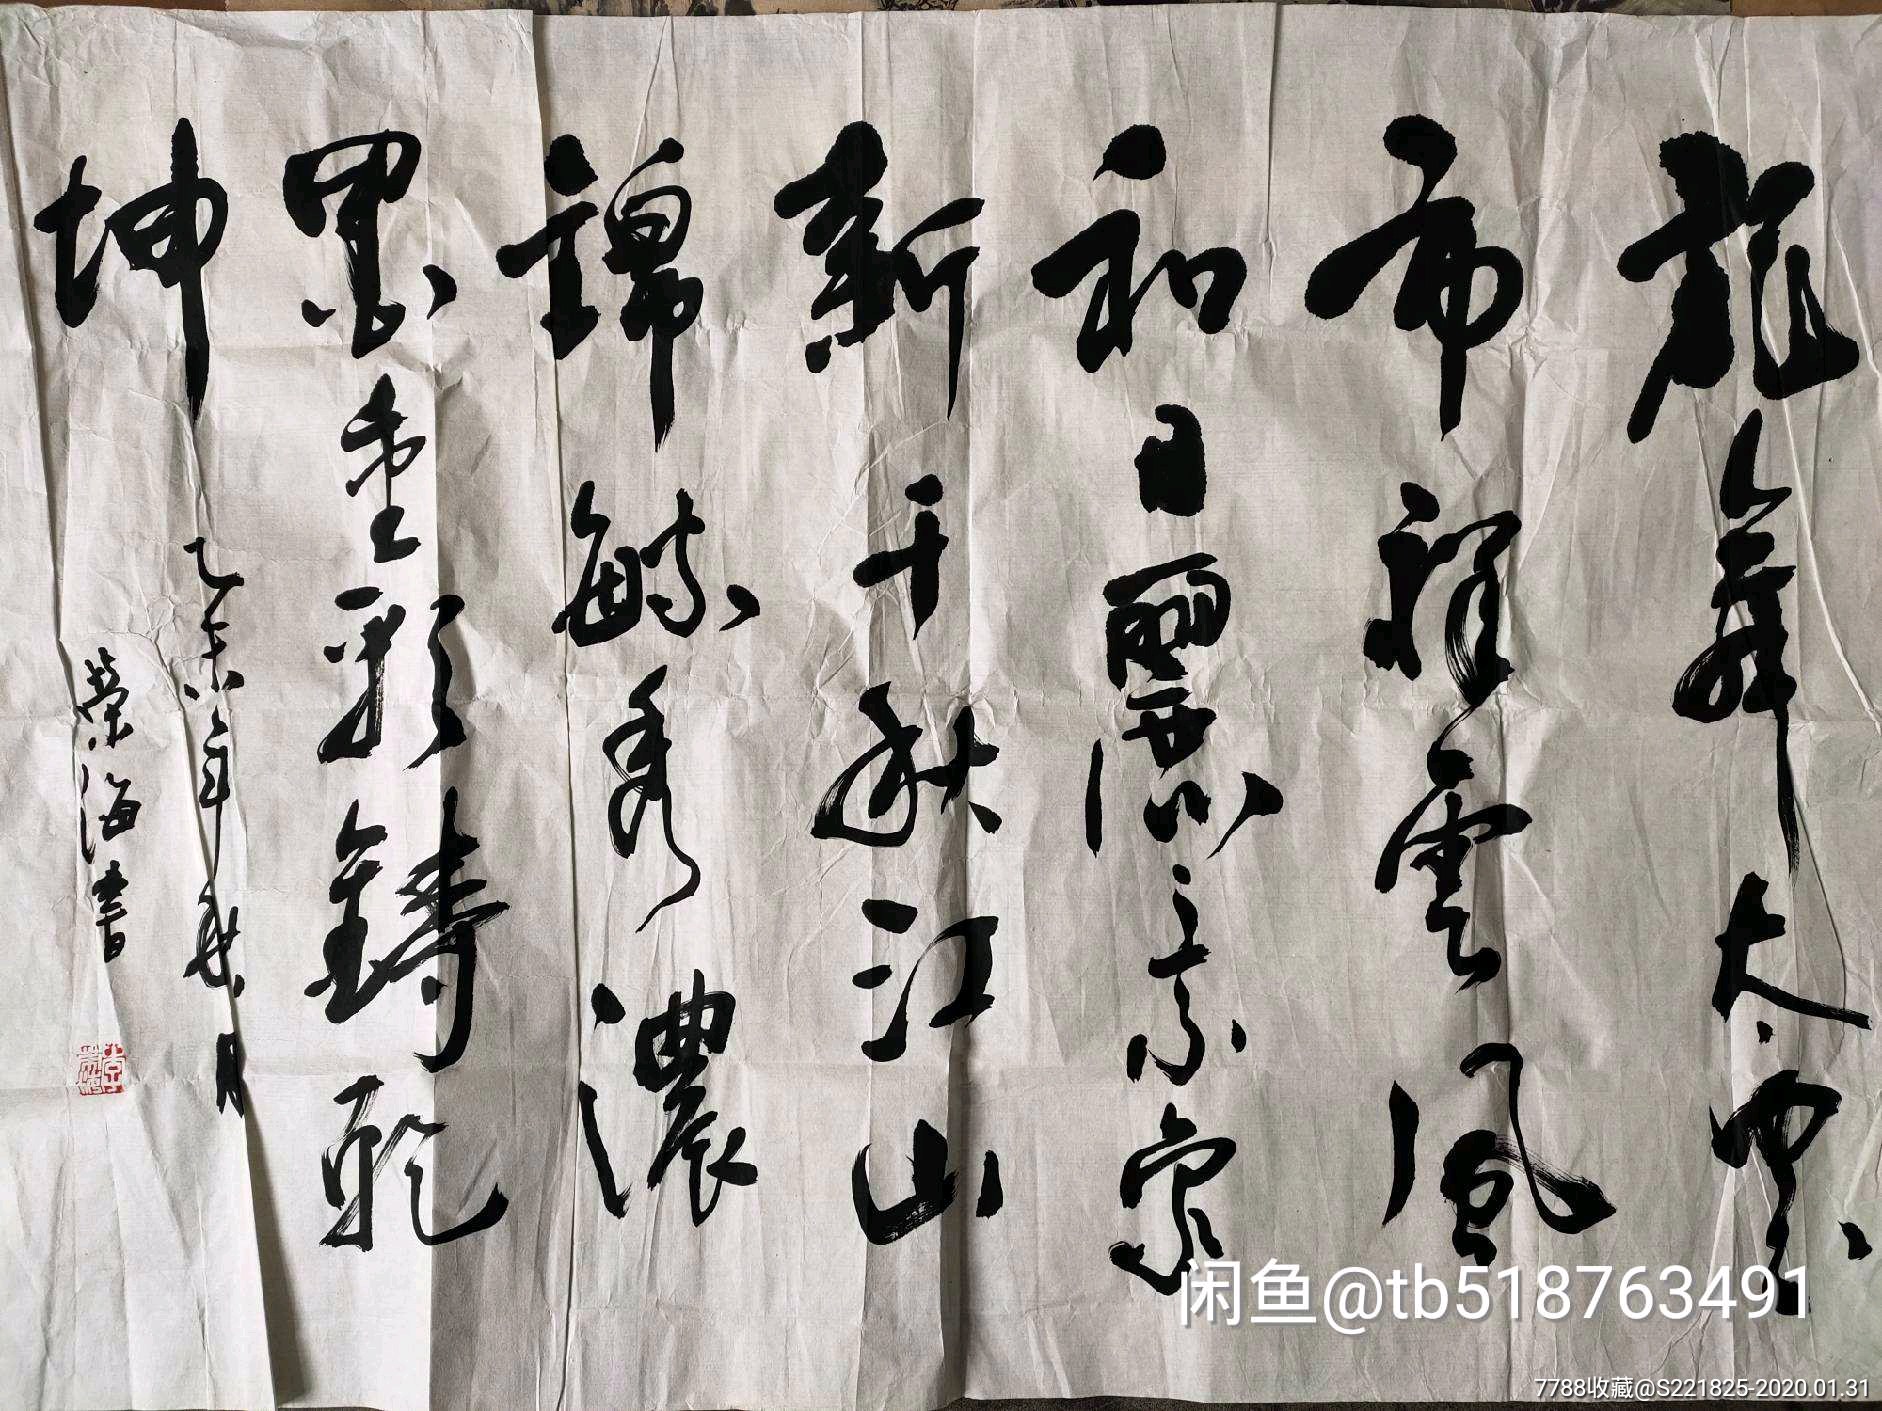 龍舞太空
布祥雲風
和日麗景象
新千秋江山
錦毓秀濃
墨重彩鑄乾
坤
乙未年夏月
榮海書
闲鱼@tb518763491
7788收藏@S221825-2020.01.31